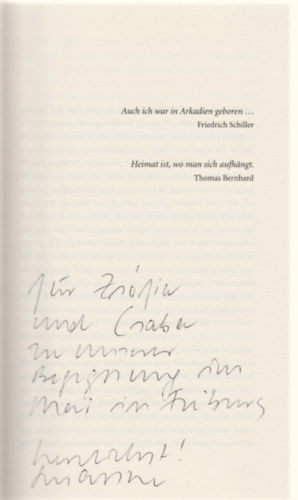 Auch ich war in Arkadien geboren …
Friedrich Schiller
Heimat ist, wo man sich aufhängt.
Thomas Bernhard
für Zsófia
und Csaba
zu unserer
Begegnung im
Mai in Friburg
herzlichst!